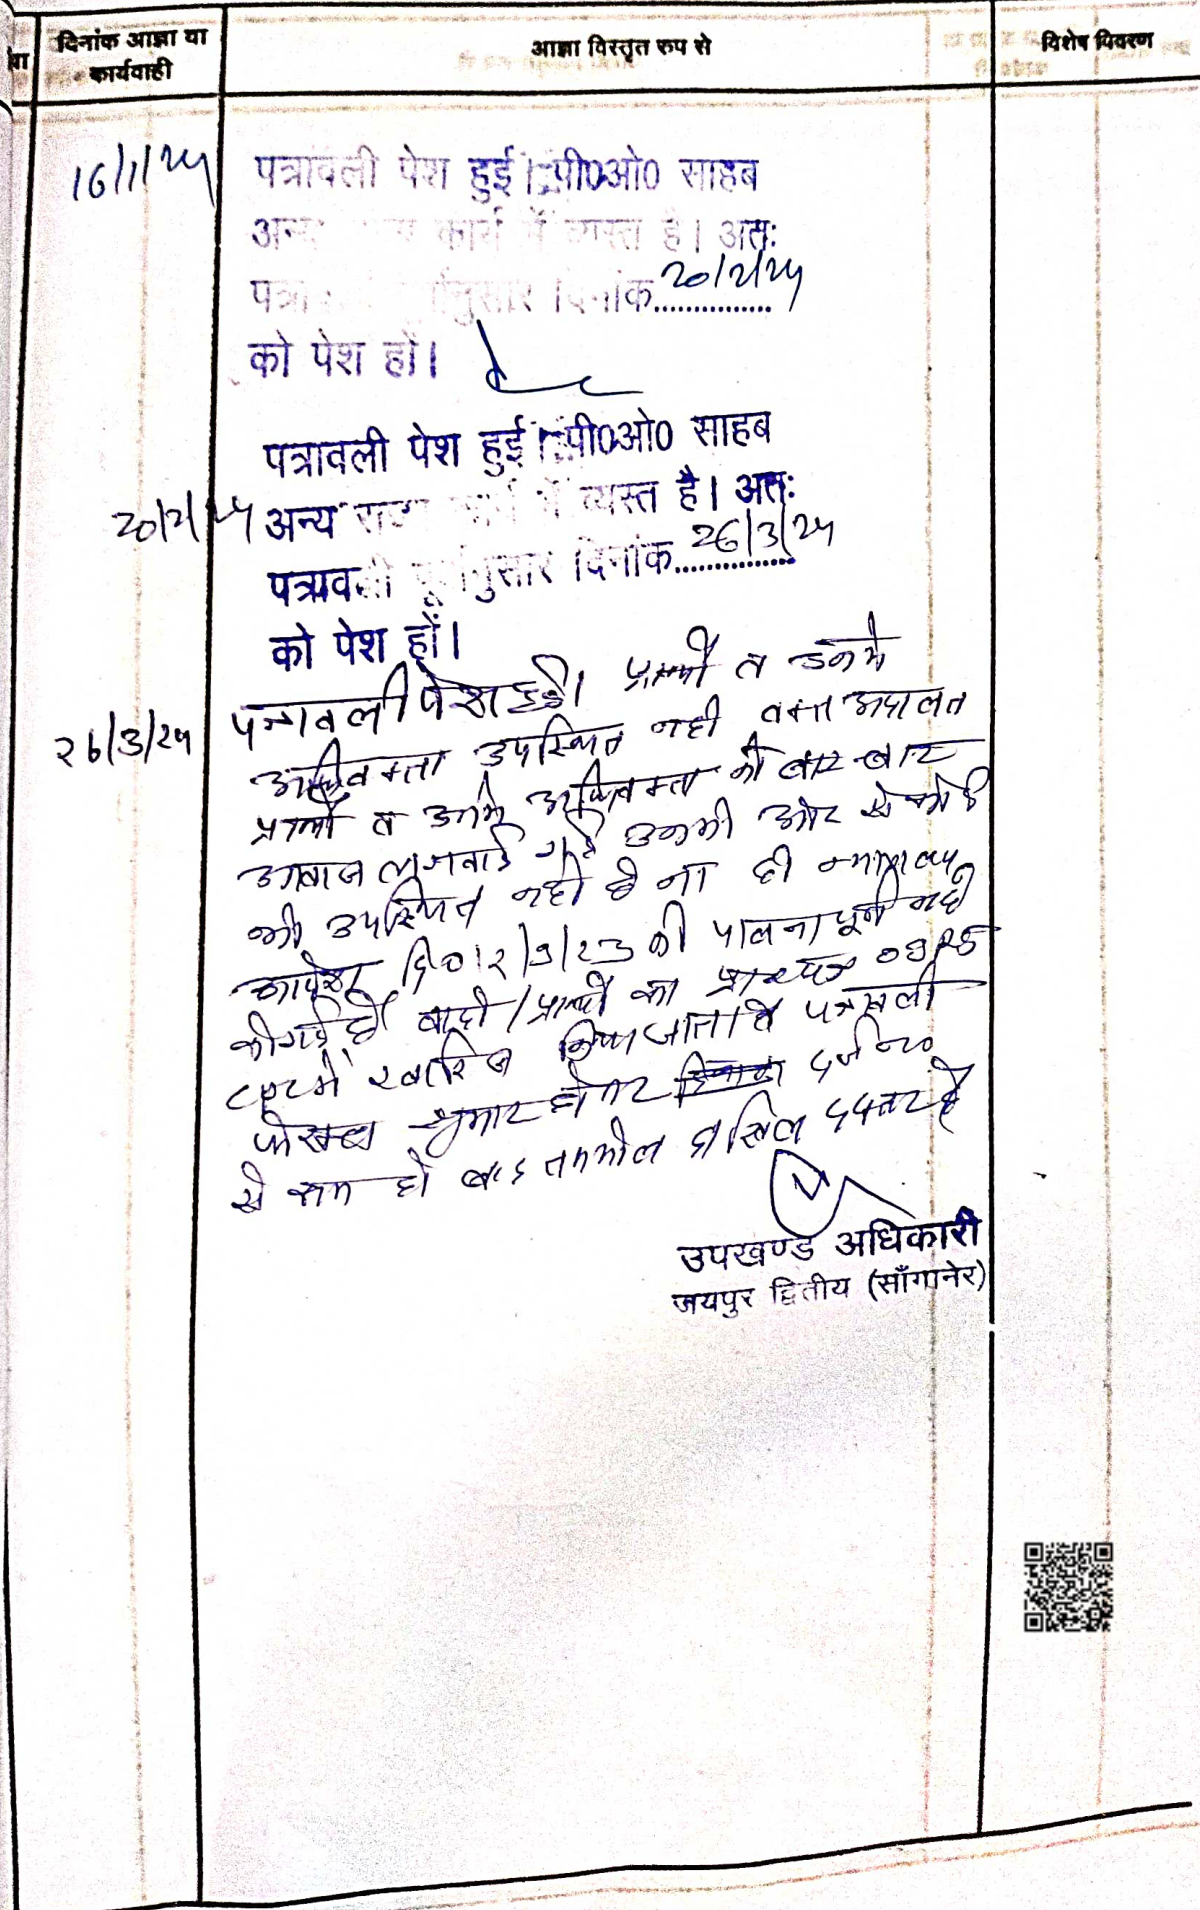 दिनांक आज्ञा या
कार्यवाही
आज्ञा विस्तृत रुप से
विशेष विवरण
16/1/24
पत्रावली पेश हुई। पी0ओ0 साहब
अन्य कार्य में व्यस्त है। अतः
दिनांक 20/2/24
को पेश हों।
20/2/24
पत्रावली पेश हुई। पी0ओ0 साहब
अन्य में व्यस्त है। अतः
पत्रावली पूर्वानुसार दिनांक 26/3/24
को पेश हों।
26/3/24
पत्रावली पेश हुई। प्रार्थी व उनके
अधिवक्ता उपस्थित नही वक्त अदालत
प्रार्थी व उनके अधिवक्ता को बार-बार
आवाज लगवाई गई उनकी ओर से कोई
भी उपस्थित नही है ना ही न्यायालय
आदेश दि0 12/9/23 की पालना पूर्ण नही
की गई है। वादी/प्रार्थी का
में खारिज किया जाता है पत्रावली
शुमार होकर दर्ज न0
से कम हो बाद तकमील दाखिल दफ्तर हो
उपखण्ड अधिकारी
जयपुर द्वितीय (साँगानेर)